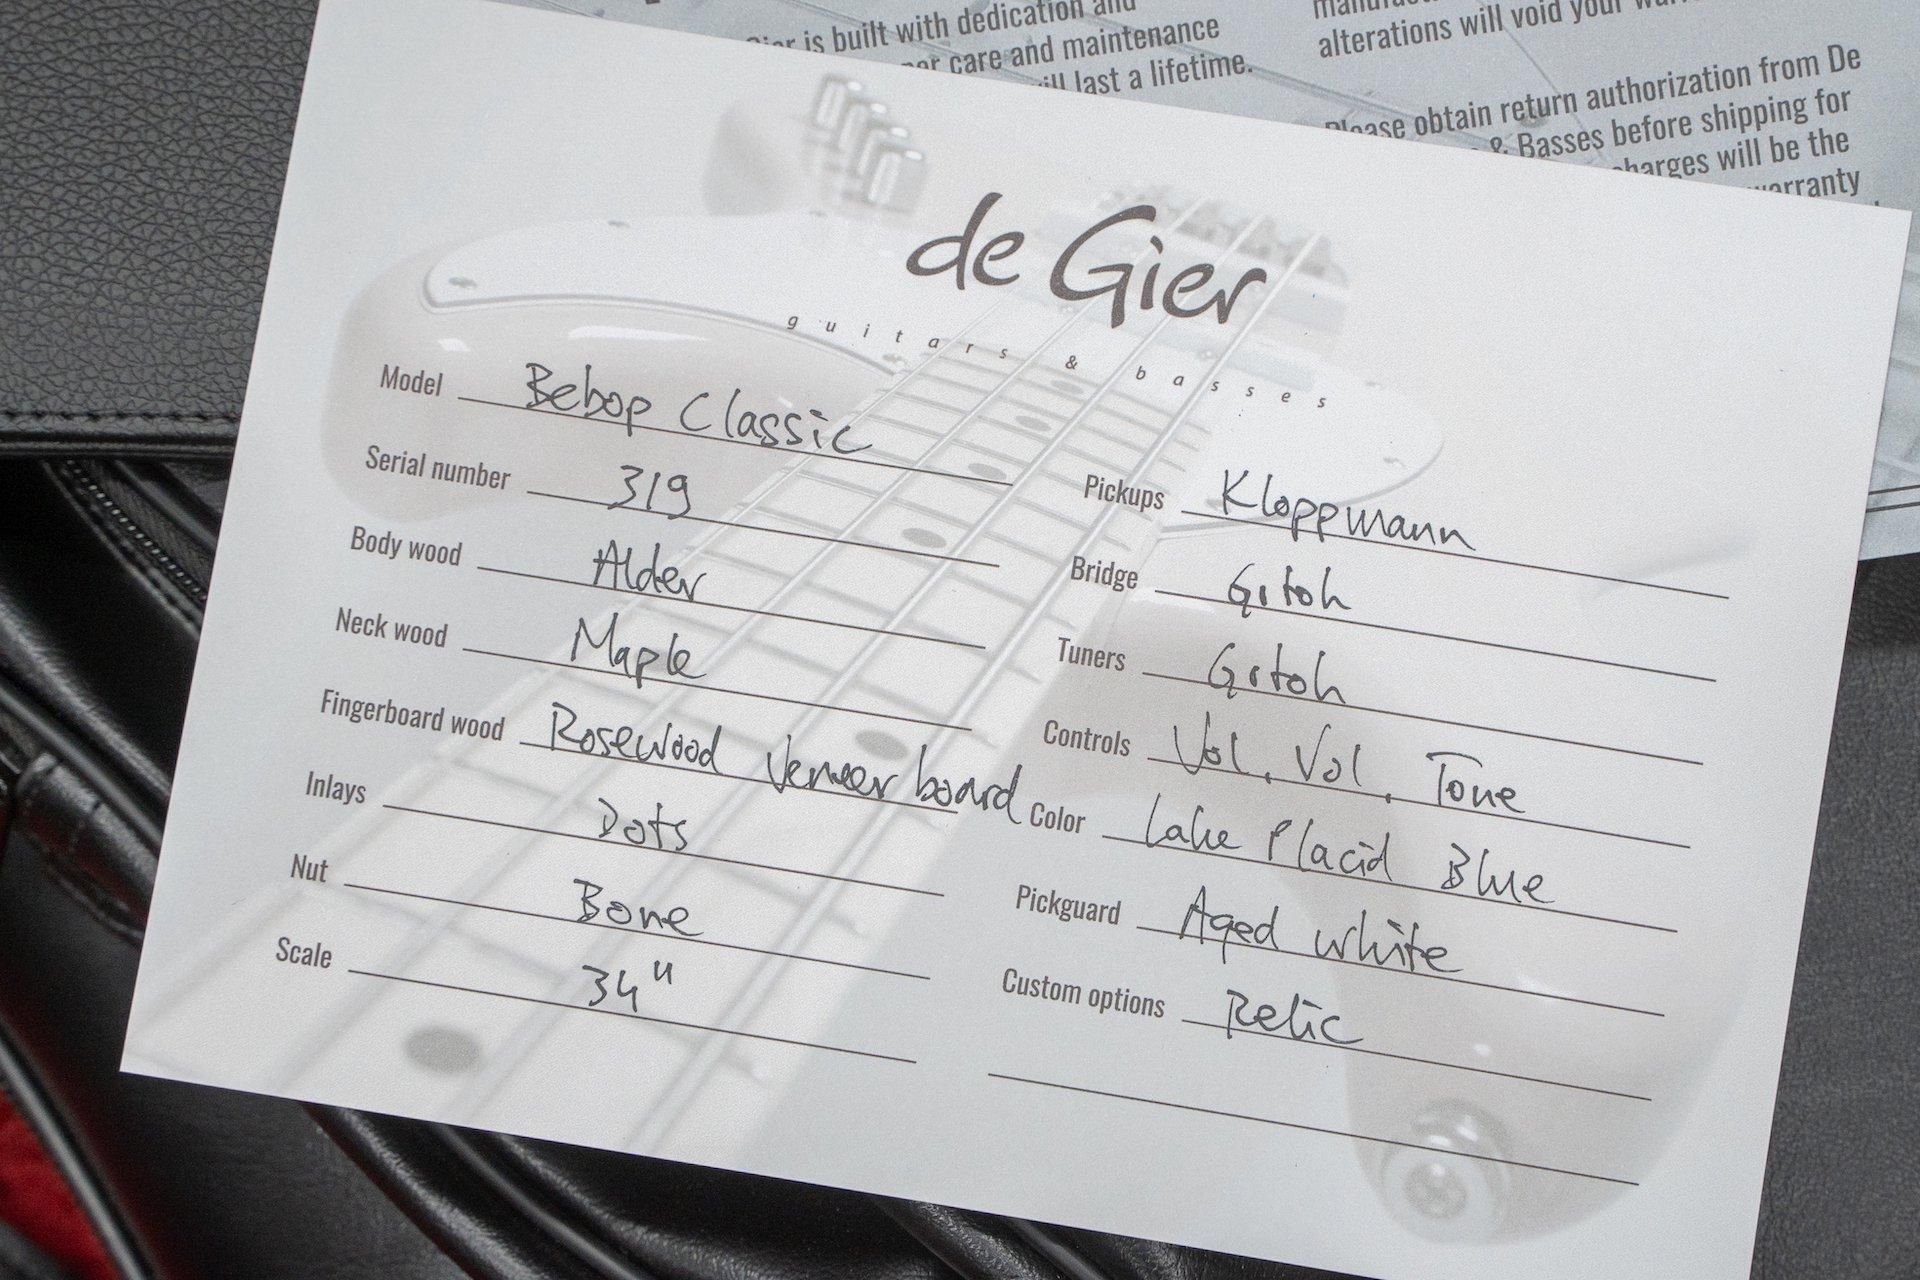 Gier is built with dedication and
care and maintenance
will last a lifetime.
alterations will void your
Please obtain return authorization from De
& Basses before shipping for
charges will be the
warranty
de Gier
guitars & basses
Model Bebop Classic
Serial number 319
Body wood Alder
Neck wood Maple
Fingerboard wood Rosewood Veneer board
Inlays Dots
Nut Bone
Scale 34"
Pickups Kloppmann
Bridge Gotoh
Tuners Gotoh
Controls Vol, Vol, Tone
Color Lake Placid Blue
Pickguard Aged white
Custom options Relic